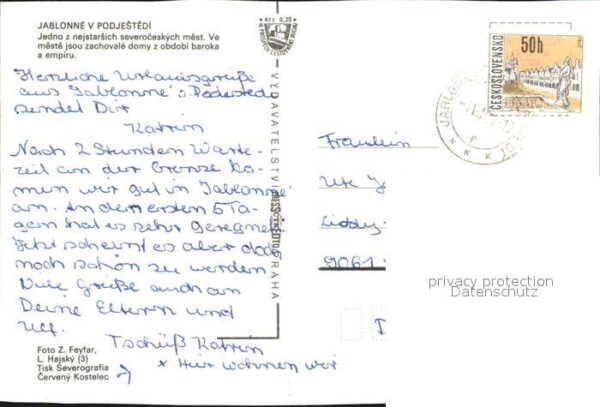 JABLONNÉ V PODJEŠTĚDÍ
Jedno z nejstarších severočeských měst. Ve
městě jsou zachovalé domy z období baroka
a empíru.
Herzliche Urlaubsgrüße
aus "Jablonne" 
sendet Dir
Katrin
Nach 2 Stunden Warte-
zeit an der Grenze ka-
men wir gut in Jablonne
an. In den ersten 5 Ta-
gen hat es sehr geregnet
Jetzt scheint es aber doch
noch schön zu werden
Viele Grüße auch an
Deine Eltern und
Ulf.
Tschüß Katrin
x Hier wohnen wir
Foto Z. Feyfar,
L. Hajský (3)
Tisk Severografia
Červený Kostelec
Kčs 0,20
VYDAVATELSTVÍ PRESSFOTO PRAHA
ČESKOSLOVENSKO
50h
Fräulein
Ute
9061
privacy protection
Datenschutz